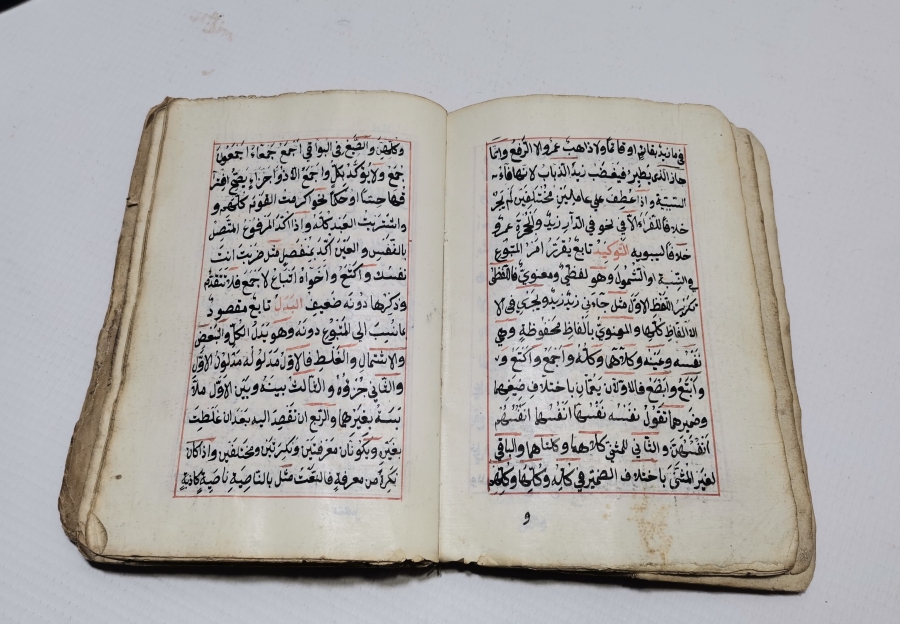 في ما زيد بقائم او قائما ولا ذاهب عمرو الا الرفع وانما
جاز الذي يطير فيغضب زيد الذباب لانها فاء
السببية واذا عطف على عاملين مختلفين لم يجز
خلافا للفراء الا في نحو في الدار زيد والحجرة عمرو
خلافا لسيبويه التوكيد تابع يقرر امر المتبوع
في النسبة والشمول وهو لفظي ومعنوي فاللفظي
تكرير اللفظ الاول مثل جاءني زيد زيد ويجري في الا
الالفاظ كلها والمعنوي بالفاظ محفوظة وهي
نفسه وعينه وكلاهما وكله واجمع واكتع و
وابتع وابصع فالاولان يعمان باختلاف صيغهما
وضميرهما تقول نفسه نفسها انفسهما انفسهم
انفسهن والثاني للمثنى كلاهما وكلتاهما والباقي
لغير المثنى باختلاف الضمير في كله وكلها وكلهم
و
وكلهن والصيغ في البواقي اجمع جمعاء اجمعون
جمع ولا يؤكد بكل واجمع الا ذو اجزاء يصح افتر
قها حسا او حكما نحو اكرمت القوم كلهم و
واشتريت العبد كله واذا اكد المرفوع المتصل
بالنفس والعين اكد بمنفصل مثل ضربت انت
نفسك واكتع واخواه اتباع لاجمع فلا تتقدم
وذكرها دونه ضعيف البدل تابع مقصود
بما نسب الى المتبوع دونه وهو بدل الكل والبعض
والاشتمال والغلط فالاول مدلوله مدلول الاول
والثاني جزؤه والثالث بينه وبين الاول ملا
بسة بغيرهما والرابع ان تقصد اليه بعد ان غلطت
بغيره ويكونان معرفتين ونكرتين ومختلفين واذا كان
نكرة من معرفة فالنعت مثل بالناصية ناصية كاذبة